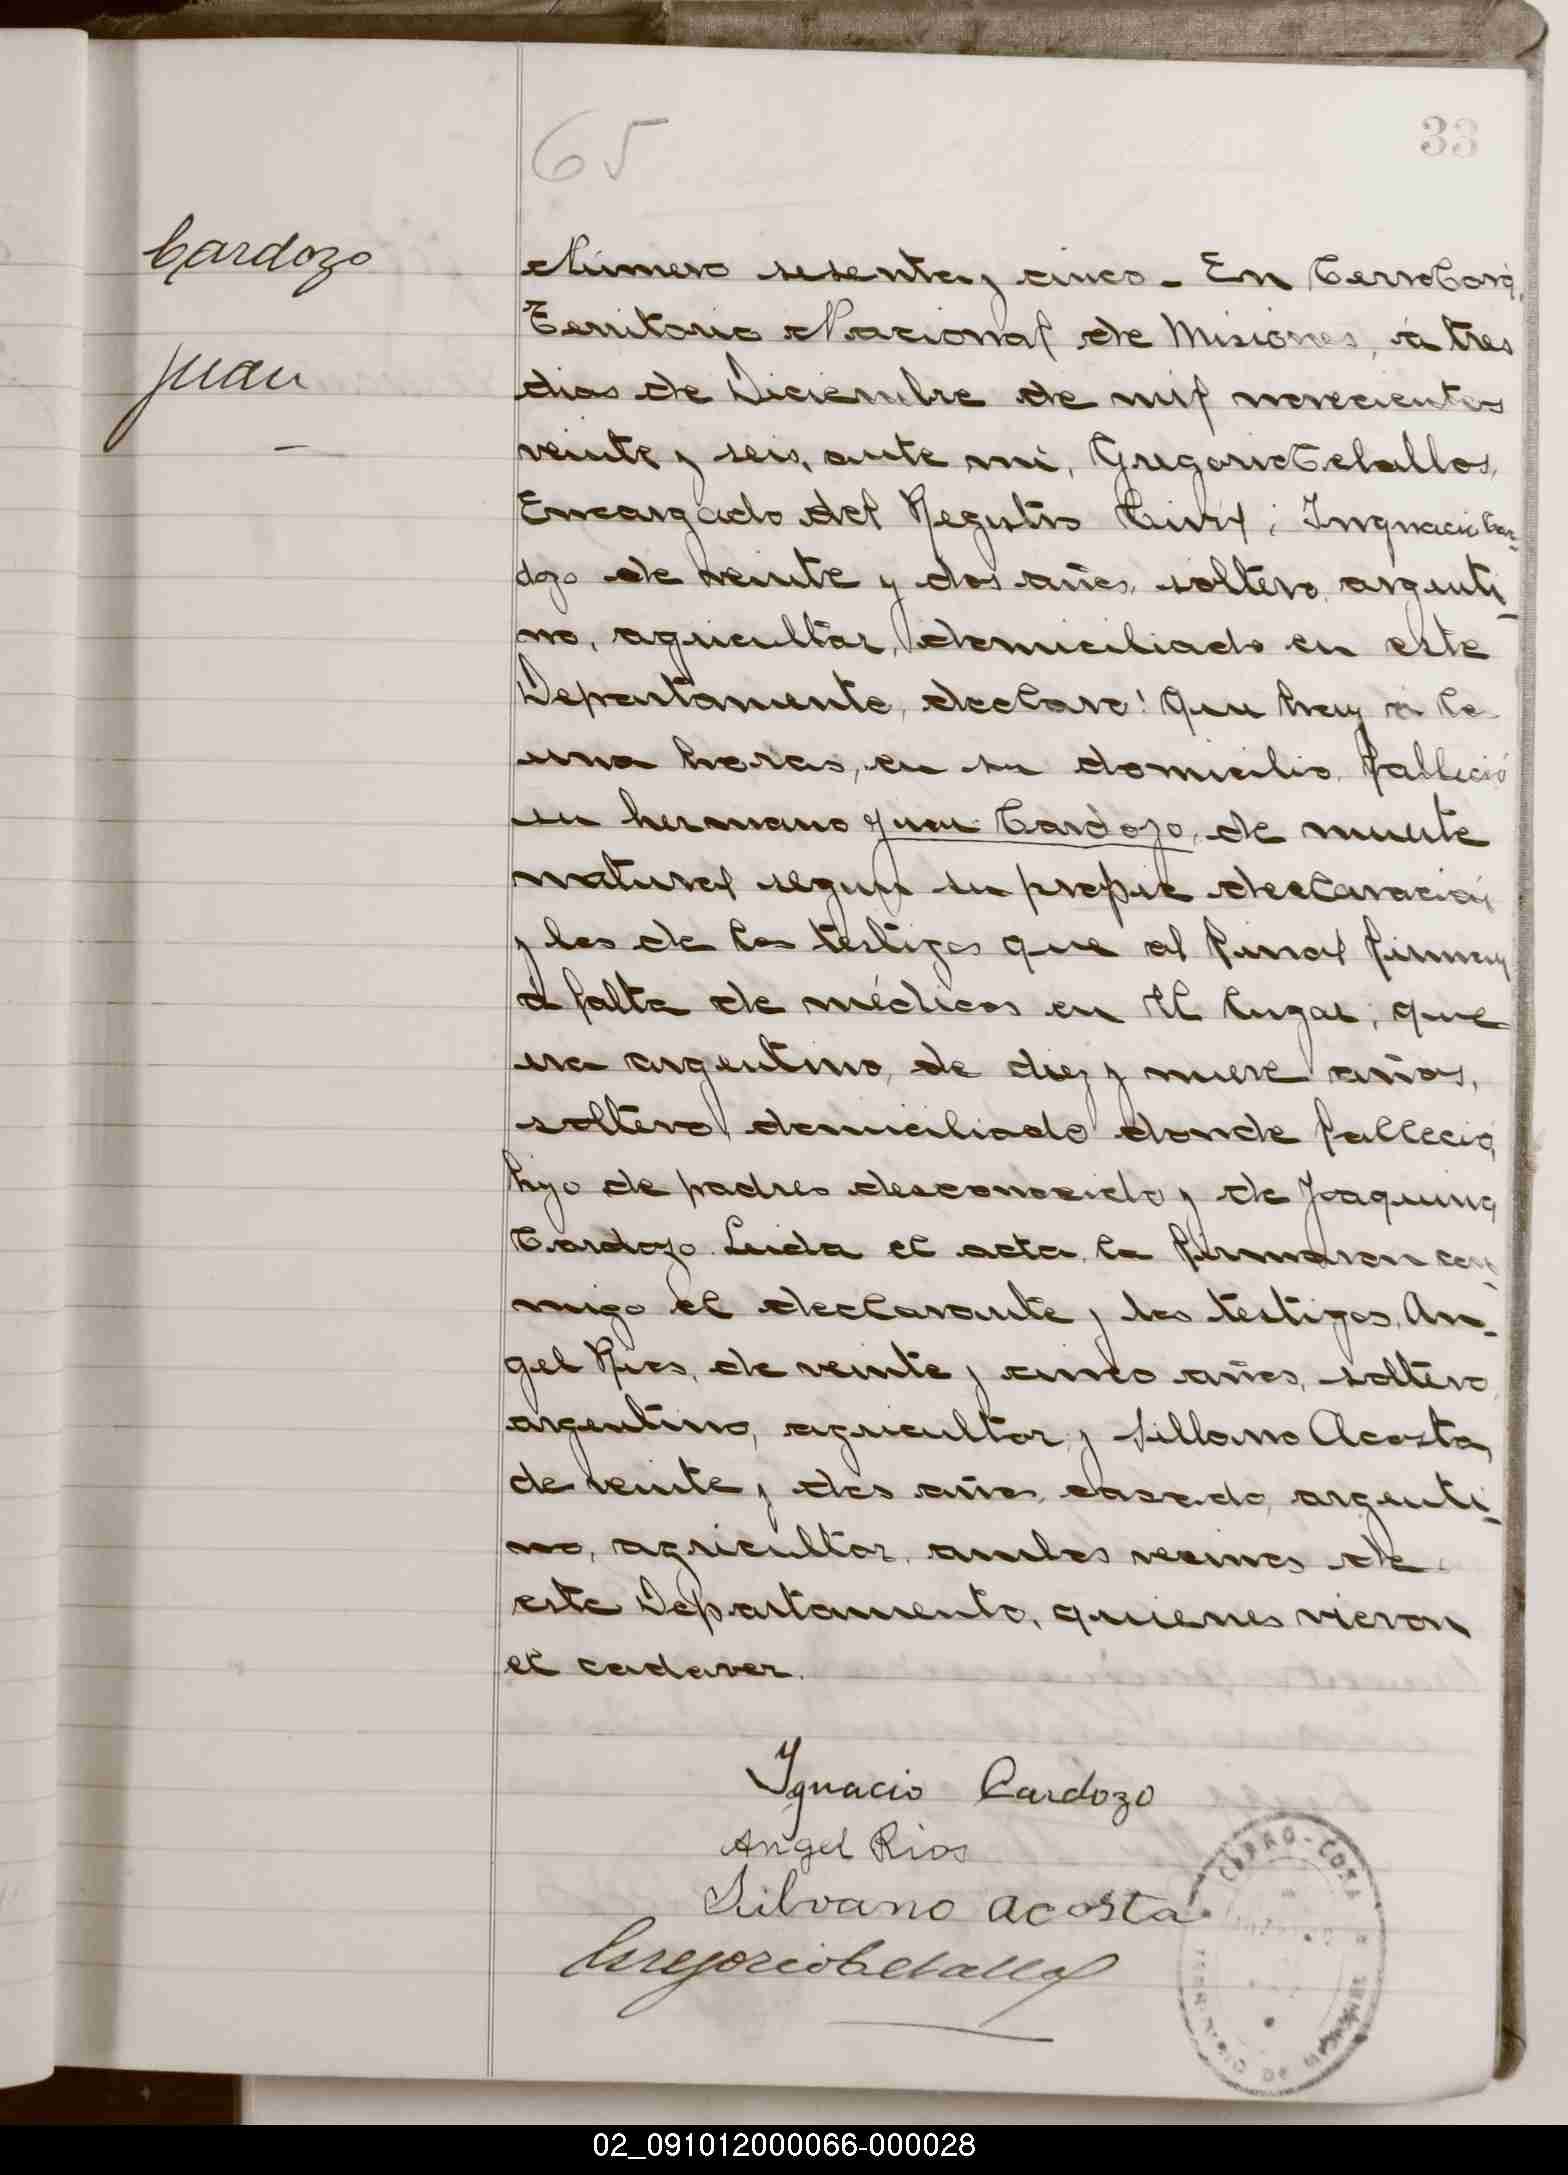 65
33
Cardozo
Juan
Número sesenta y cinco - En Cerro Corá,
Territorio Nacional de Misiones, á tres
dias de Diciembre de mil novecientos
veinte y seis, ante mi, Gregorio Ceballos,
Encargado del Registro Civil; Ingnacio Car-
dozo de veinte y dos años, soltero, argenti-
no, agricultor, domiciliado en este
Departamento, declaro: Que hoy a la
una horas, en su domicilio, falleció
su hermano Juan Cardozo, de muerte
natural segun su propia declaración
y las de los testigos que al final firman
a falta de médicos en el lugar; que
era argentino, de diez y nueve años,
soltero, domiciliado donde falleció,
hijo de padres desconocido y de Joaquina
Cardozo. Leida el acta, la firmaron con-
migo el declarante y los testigos, An-
gel Rios, de veinte y cinco años, soltero,
argentino, agricultor, y Sillvano Acosta,
de veinte y dos años, casado, argenti-
no, agricultor, ambos vecinos de
este Departamento, quienes vieron
el cadaver.
Ygnacio Cardozo
Angel Rios
Silvano Acosta
Gregorio Ceballos
CERRO-CORA
02_091012000066-000028